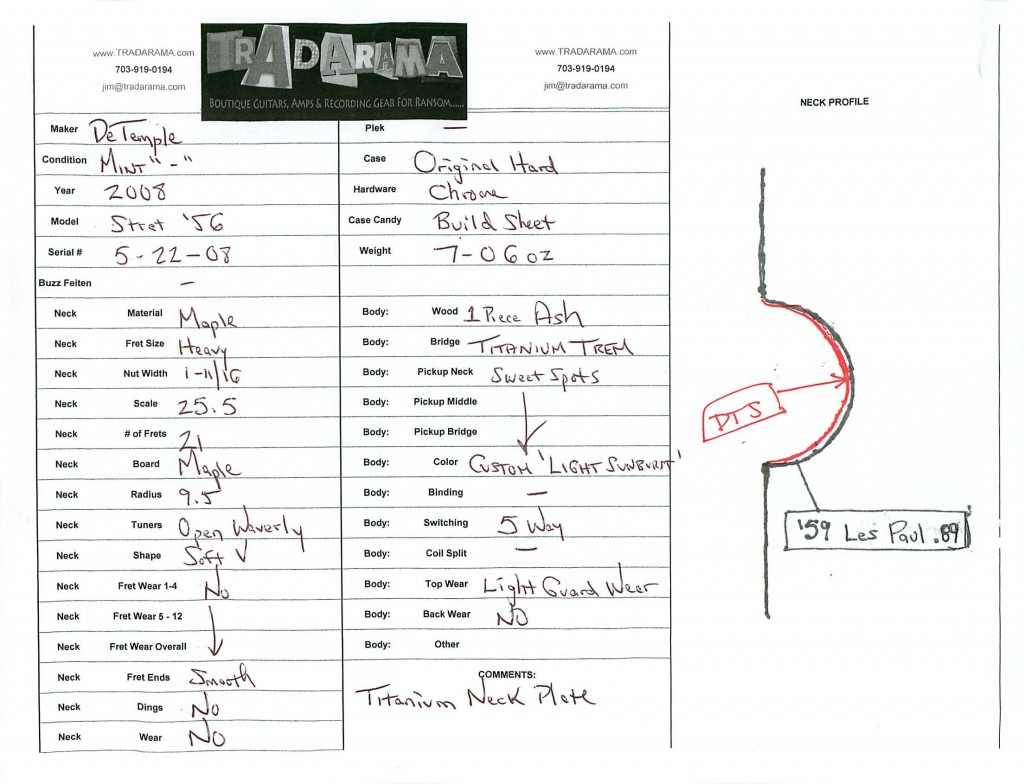 www.TRADARAMA.com
703-919-0194
jim@tradarama.com
TRADARAMA
BOUTIQUE GUITARS, AMPS & RECORDING GEAR FOR RANSOM......
www.TRADARAMA.com
703-919-0194
jim@tradarama.com
Maker DeTemple
Condition MINT "-"
Year 2008
Model Strat '56
Serial # 5-22-08
Buzz Feiten –
Neck Material Maple
Neck Fret Size Heavy
Neck Nut Width 1-11/16
Neck Scale 25.5
Neck # of Frets 21
Neck Board Maple
Neck Radius 9.5
Neck Tuners Open Waverly
Neck Shape Soft V
Neck Fret Wear 1-4 No
Neck Fret Wear 5 - 12
Neck Fret Wear Overall
Neck Fret Ends Smooth
Neck Dings No
Neck Wear No
Plek –
Case Original Hard
Hardware Chrome
Case Candy Build Sheet
Weight 7-06oz
Body: Wood 1 Piece Ash
Body: Bridge TITANIUM TREM
Body: Pickup Neck Sweet Spots
Body: Pickup Middle
Body: Pickup Bridge
Body: Color CUSTOM 'LIGHT SUNBURST'
Body: Binding –
Body: Switching 5 Way
Body: Coil Split –
Body: Top Wear Light Guard Wear
Body: Back Wear NO
Body: Other
COMMENTS:
Titanium Neck Plate
NECK PROFILE
DTS
'59 Les Paul .89